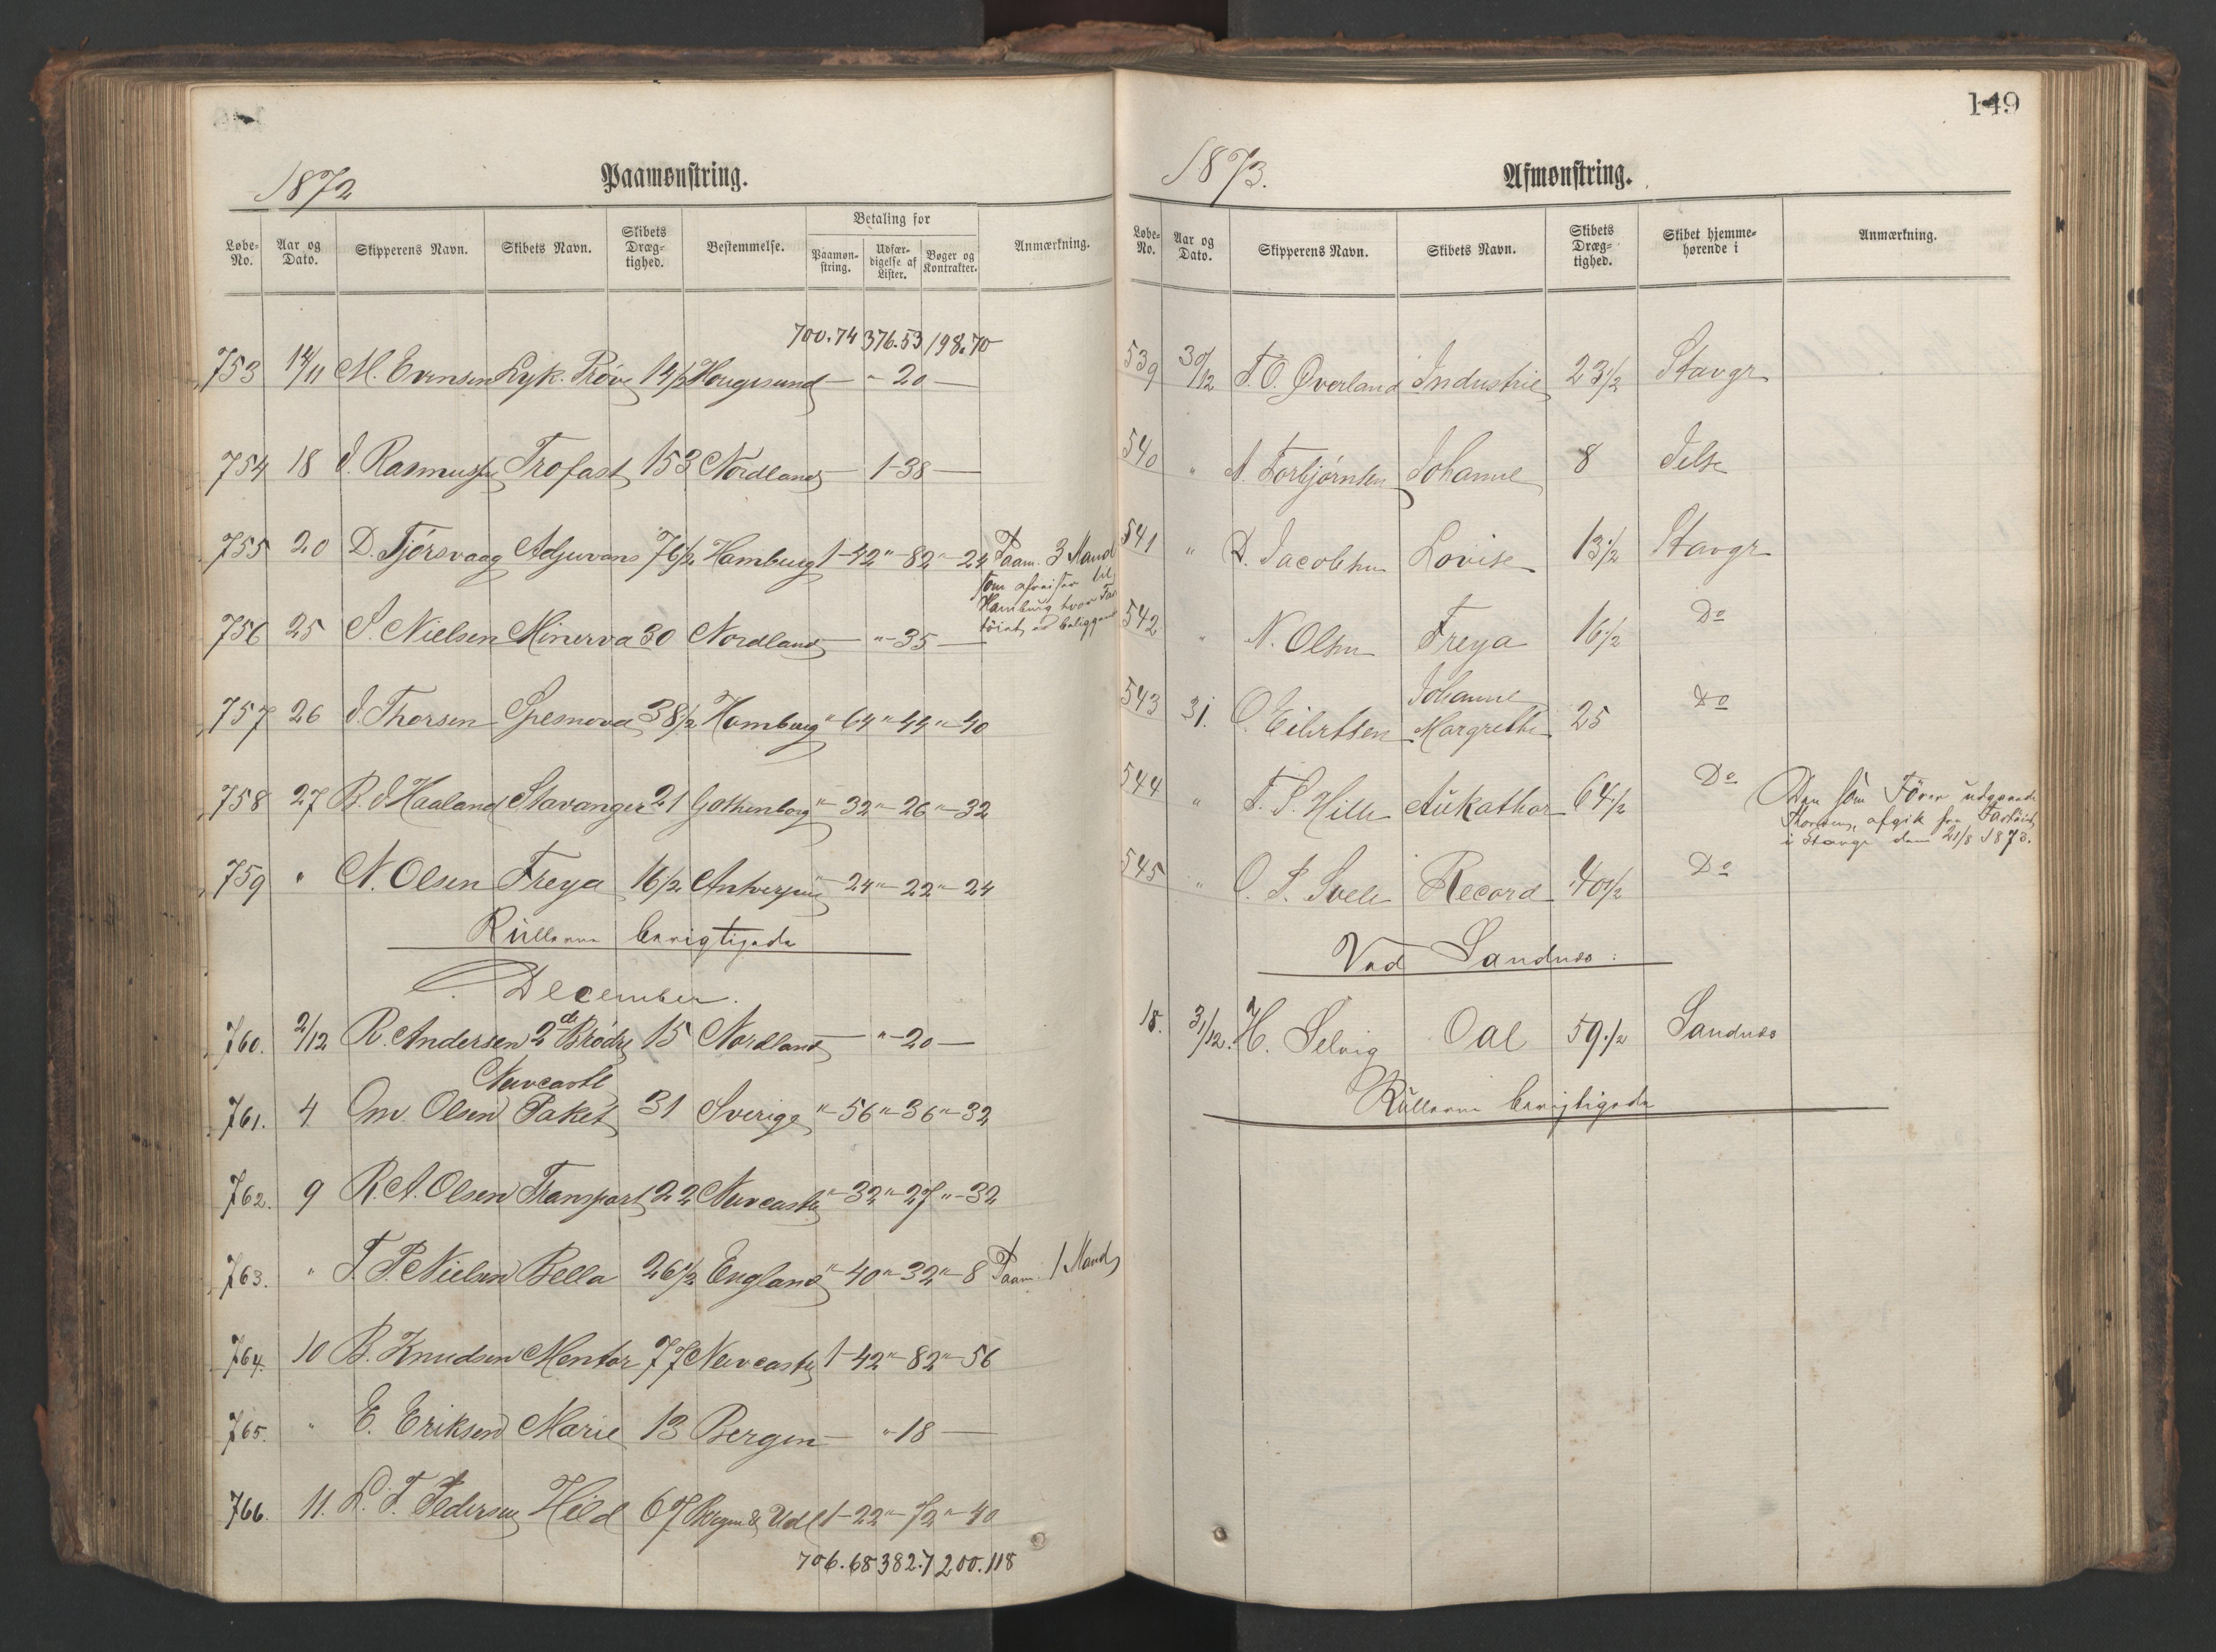 149
1872
Paamønstring.
Løbe-No. Aar og Dato. Skipperens Navn. Skibets Navn. Skibets Dræg-tighed. Bestemmelse. Betaling for Paamøn-string. Udfær-digelse af Lister. Bøger og Kontrakter. Anmærkning.
700.74 376.53 198.70
753 14/11 M. Evensen Lyk. Prøve 14½ Hougesund — " 20 —
754 18 J. Rasmussen Trofast 153 Nordland — 1-38 —
755 20 D. Tjørsvaag Adjuvans 76½ Hamburg 1-42 "-82 "-24 Paam. 3 Mand
som afreiser til
Hamburg hvor Far
töiet er beliggende
756 25 S. Nielsen Minerva 30 Nordland — "-35 —
757 26 J. Thorsen Spesnova 38½ Hamburg "-64 "-44 "-40
758 27 B. J Haaland Stavanger 21 Gothenborg "-32 "-26 "-32
759 " N. Olsen Freya 16½ Antverpen "-24 "-22 "-24
Rullerne berigtigede
December.
760. 2/12 R. Andersen 2de Brödre 15 Nordland — "-20 —
Newcastle
761. 4 Om Olsen Paket 31 Sverige "-56 "-36 "-32
762. 9 R. A. Olsen Transport 22 Newcastle "-32 "-27 "-32
763. " T. P. Nielsen Bella 26½ England "-40 "-32 "-8 Paam. 1 Mand
764. 10 B. Knudsen Mentor 77 Newcastle 1-42 "-82 "-56
765. " E. Eriksen Marie 13 Bergen — "-18 —
766. 11. L. T. Pedersen Hild 67 Bergen & Udl 1-22 "-72 "-40
706.68 382.7 200.118
1873.
Afmønstring.
Løbe-No. Aar og Dato. Skipperens Navn. Skibets Navn. Skibets Dræg-tighed. Skibet hjemme-hørende i Anmærkning.
539 30/12 T. O. Øverland Industrie 23½ Stavgr
540 " A. Torbjørnsen Johanne 8 Jelse
541 " D. Jacobsen Lovise 13½ Stavgr
542 " N. Olsen Freya 16½ Do
543 31. O. Eilertsen Johanne Margrethe 25 Do
544 " T. S. Hille Aukathor 64½ Do Den som Förer udgaaede
Thorsen, afgik fra Fartöiet
i Stavgr den 21/8 1873.
545 " O. P. Svele Record 40½ Do
Ved Sandnes:
18. 31/12. H. Selvig Oal 59½ Sandnes
Rullerne berigtigede